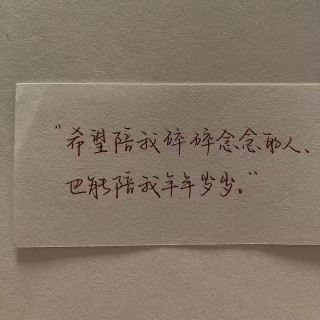 “希望陪我碎碎念念的人、
也能陪我年年岁岁。”